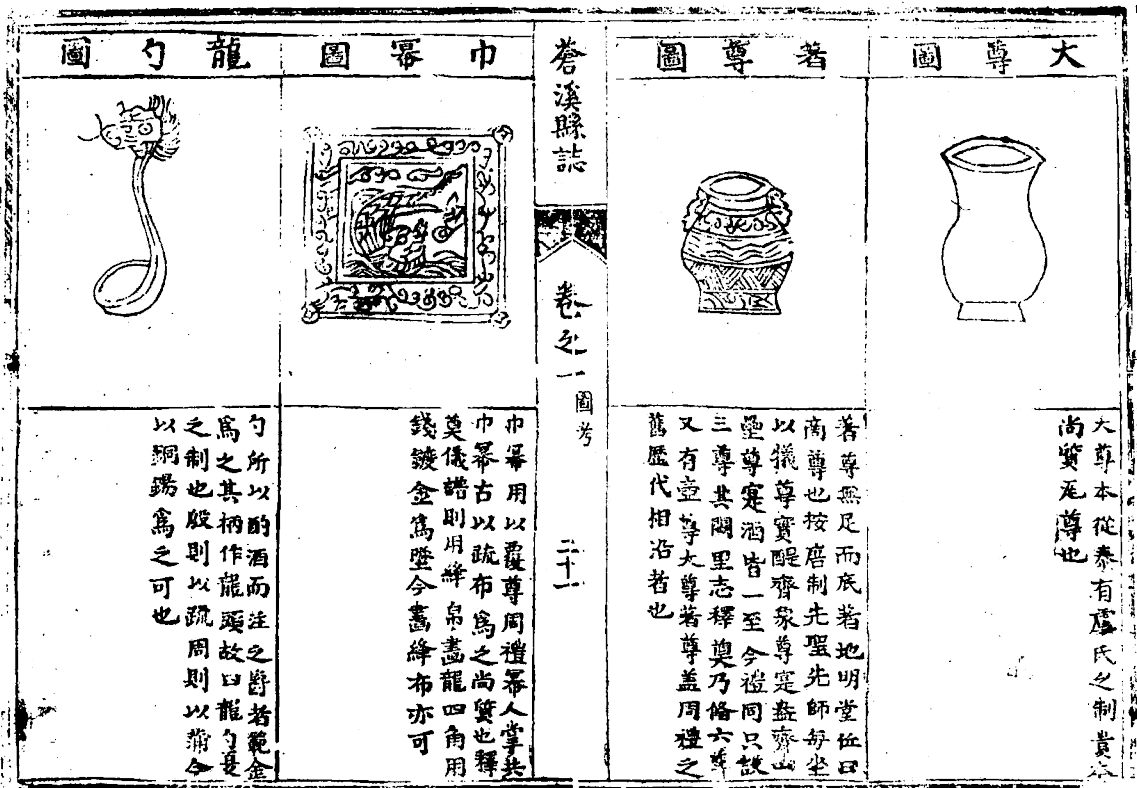 大尊圖
大尊本從泰有虞氏之制貴本
尚質尾尊也
著尊圖
著尊無足而底著地明堂位曰
商尊也按唐制先聖先師每坐
以犧尊實醍齊象尊寔盎齊山
壘尊寔酒皆一至今禮同只設
三尊其闕里志釋奠乃偹六尊
又有壺尊大尊著尊盖周禮之
舊歷代相沿者也
蒼溪縣誌
卷之一
圖考
二十一
巾冪圖
巾冪用以覆尊周禮冪人掌共
巾冪古以疏布爲之尚質也釋
奠儀譜則用絳帛畵龍四角用
錢鍍金爲墜今畵絳布亦可
龍勺圖
勺所以酌酒而注之爵者範金
爲之其柄作龍頭故曰龍勺夏
之制也殷則以疏周則以蒲今
以銅錫爲之可也